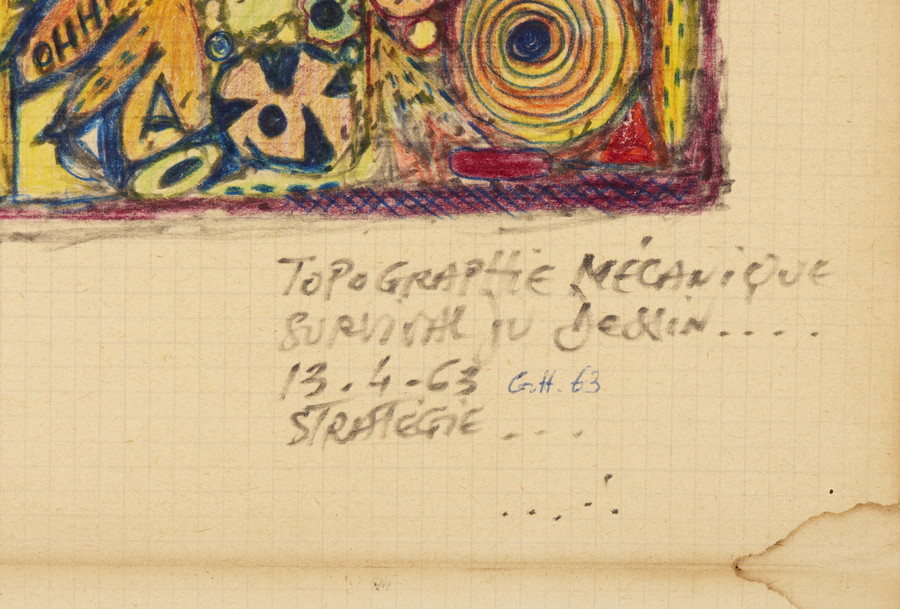 OHH!
A
TOPOGRAPHiE MÉCANiQUE
SURVIVAL DU DESSiN....
13.4-63 G.H. 63
STRATÉGiE ...
.....